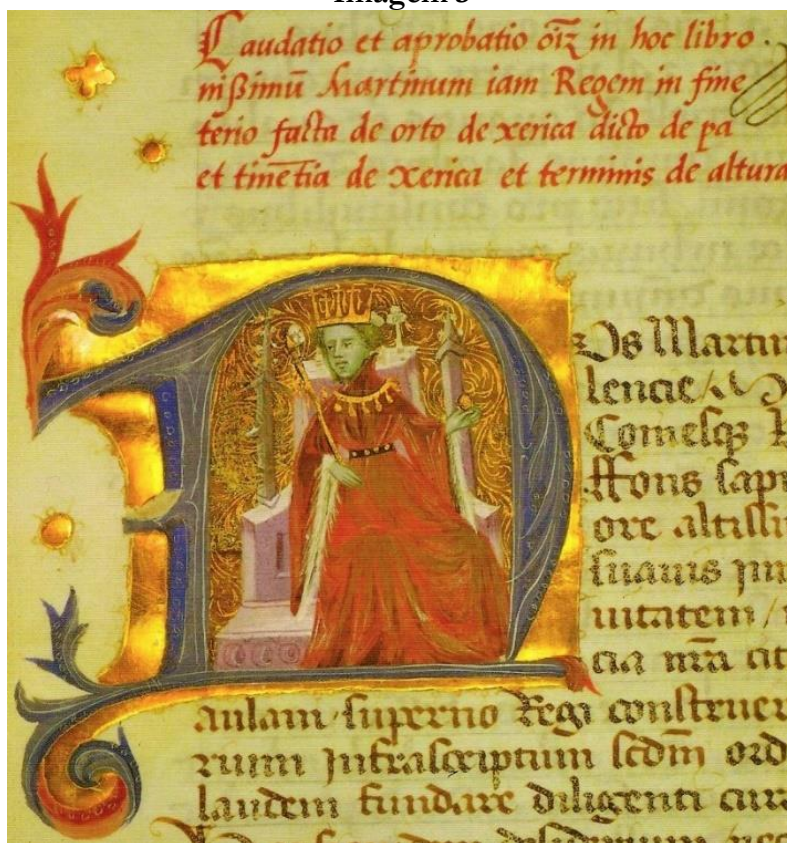 Laudatio et aprobatio oīz in hoc libro
nißimū Martinum iam Regem in fine
terio facta de orto de xerica dicto de pa
et tinētia de xerica et terminis de altura
NOs Martin
lencie
Comesqz
ffons sapi
ore altissi
suauis
uitatem /
cia nrā cit
aulam superno Regi construer
rum Infrascriptum scdm̄ ord
laudem fundare diligenti cura